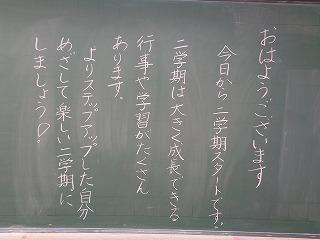 おはようございます
今日から二学期スタートです。
二学期は大きく成長できる
行事や学習がたくさん
あります。
よりステップアップした自分
めざして楽しい二学期に
しましょう